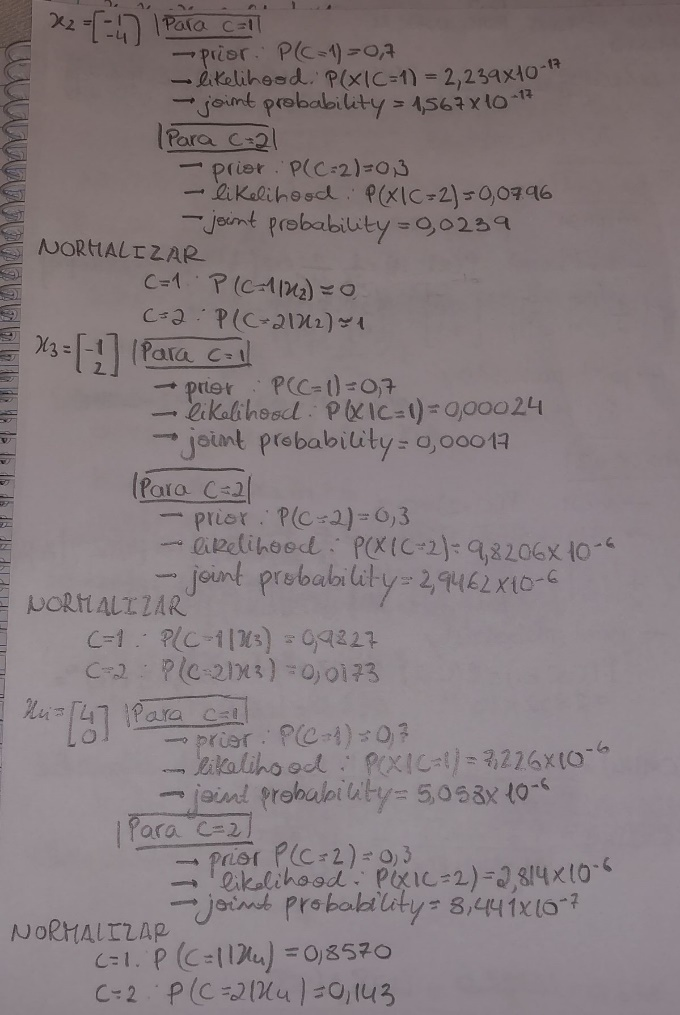 x₂ = [-1 -4] |Para C=1|
→ prior: P(C=1)=0,7
→ likelihood: P(X|C=1) = 2,239x10⁻¹⁷
→ joint probability = 1,567x10⁻¹⁷
|Para C=2|
→ prior: P(C=2)=0,3
→ likelihood: P(X|C=2)=0,0796
→ joint probability=0,0239
NORMALIZAR
C=1: P(C=1|x₂) ≈ 0
C=2: P(C=2|x₂) ≈ 1
x₃ = [-1 2] |Para C=1|
→ prior: P(C=1)=0,7
→ likelihood: P(X|C=1)=0,00024
→ joint probability=0,00017
|Para C=2|
→ prior: P(C=2)=0,3
→ likelihood: P(X|C=2)=9,8206x10⁻⁶
→ joint probability=2,9462x10⁻⁶
NORMALIZAR
C=1: P(C=1|x₃) =0,9827
C=2: P(C=2|x₃) =0,0173
x₄ = [4 0] |Para C=1|
→ prior: P(C=1)=0,7
→ likelihood: P(X|C=1)=7,226x10⁻⁶
→ joint probability= 5,058x10⁻⁶
|Para C=2|
→ prior P(C=2)=0,3
→ likelihood: P(X|C=2)=2,814x10⁻⁶
→ joint probability=8,441x10⁻⁷
NORMALIZAR
C=1: P(C=1|x₄) =0,8570
C=2: P(C=2|x₄) =0,143